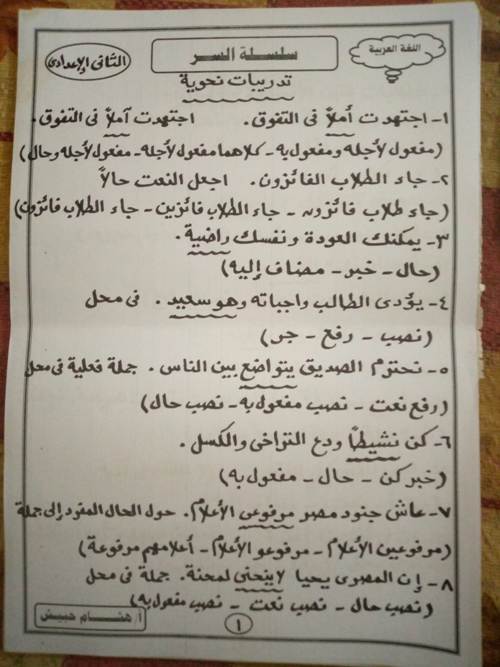 اللغة العربية
سلسلة السر
الثانى الإعدادى
تدريبات نحوية
١- اجتهدت أملاً فى التفوق. اجتهدت آملاً فى التفوق.
(مفعول لأجله ومفعول به - كلاهما مفعول لأجله - مفعول لأجله وحال)
٢- جاء الطلاب الفائزون. اجعل النعت حالاً
(جاء طلاب فائزون - جاء الطلاب فائزين - جاء الطلاب فائزون)
٣- يمكنك العودة ونفسك راضية.
(حال - خبر - مضاف إليه)
٤- يؤدى الطالب واجباته وهو سعيد. فى محل
(نصب - رفع - جر)
٥- نحترم الصديق يتواضع بين الناس. جملة فعلية فى محل
(رفع نعت - نصب مفعول به - نصب حال)
٦- كن نشيطاً ودع التراخى والكسل.
(خبر كن - حال - مفعول به)
٧- عاش جنود مصر مرفوعى الأعلام. حول الحال المفرد إلى جملة
(مرفوعين الأعلام - مرفوعو الأعلام - أعلامهم مرفوعة)
٨- إن المصرى يحيا لا ينحنى لمحنة. جملة فى محل
(نصب حال - نصب نعت - نصب مفعول به)
أ/ هشام حبيش
١